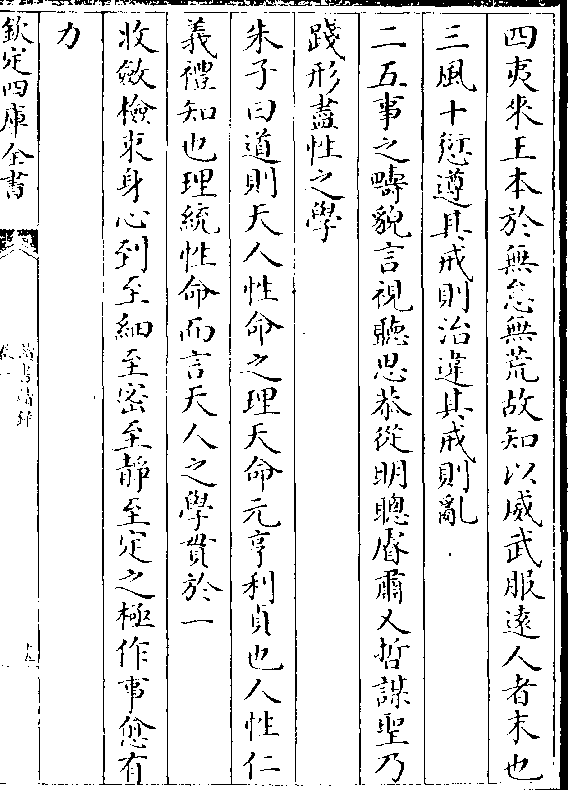 四夷来王本於無怠無荒故知以威武服遠人者末也
三風十愆遵其戒則治違其戒則亂
二五事之疇貌言視聽思恭從明聰睿肅乂哲謀聖乃
踐形盡性之學
朱子曰道則天人性命之理天命元亨利貞也人性仁
義禮知也理統性命而言天人之學貫於一
收斂檢束身心到至細至密至靜至定之極作事愈有
力
欽定四庫全書